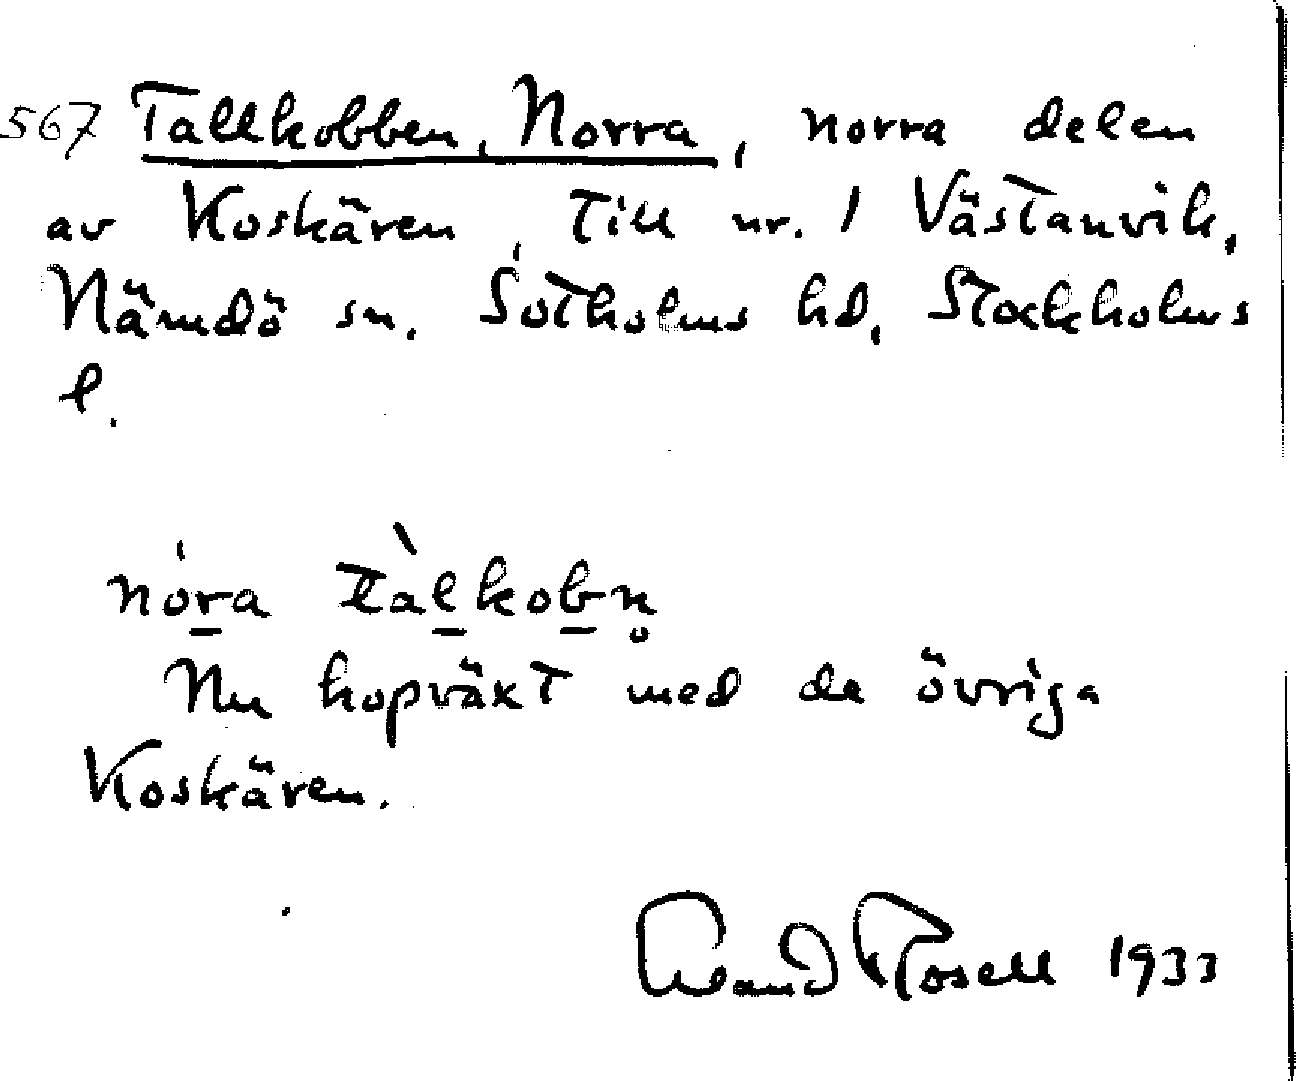 567 Tallkobben, Norra, norra delen
av Koskären, till nr. 1 Västanvik,
Nämdö sn. Sotholms hd, Stockholms
l.
nóra tàlkobn̥
Nu hopväxt med de övriga
Koskären.
Rosell 1933